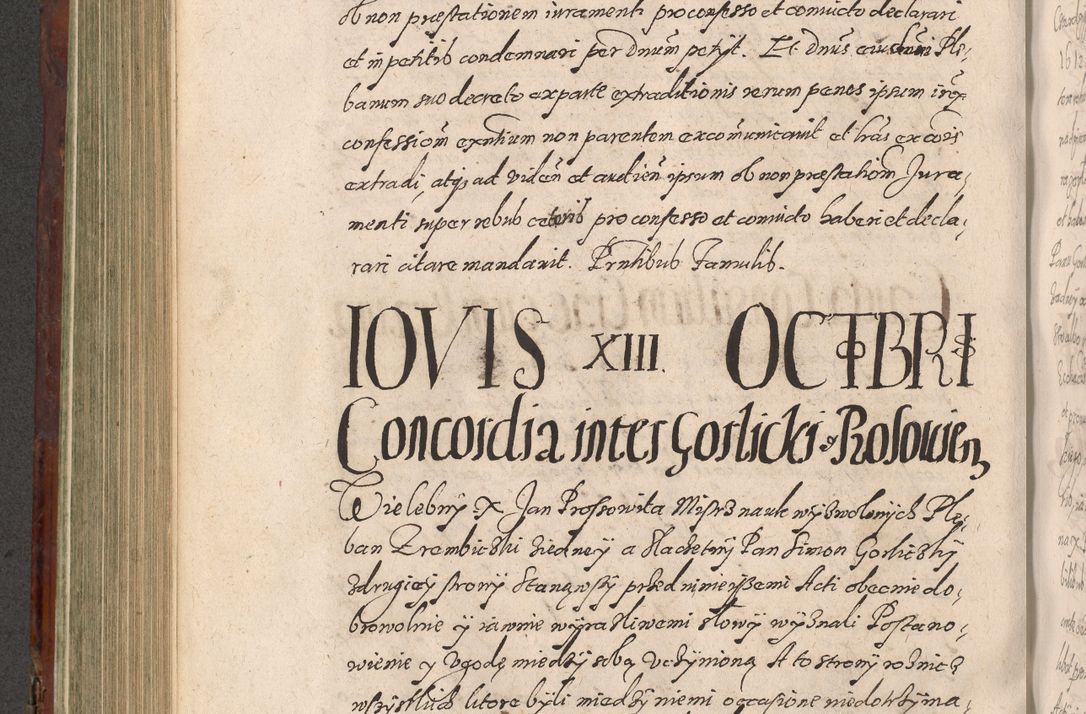 ob non præstationem iuramenti pro confesso et comvicto declarari
et in petitis condemnari per Dnum petijt. Et Dnus eundem Ple,
banum suo decreto ex parte extraditionis rerum penes ipsum iux
confessiom exntium non parentem excomunicavit et lras excois
extradi, atqs ad viden et audien ipsum ob non præstatiom Jura,
menti super rebus ceteris pro confesso et comvicto haberi et decla,
rari citare mandavit. Prntibus Famulis.
IOVIS XIII. OCTBRIS
Concordia inter Gorlicki & Rosowien,
Wielebny X Jan Prossowita Mistrz nauk wyzwolonych Ple,
ban Zrambicski ziedney a Slachetny Pan Simon Gorliczky
zdrugiey strony Stanąwszy przed ninieyszemi Acti obecnie do,
browolnie y iawnie wyrazliwemi słowy wyznali Postano,
wienie y Vgodę miedzy sobą Vczynioną A to strony rożnic
wszystkich ktore byli miedzy niemi occasione niedotrzyma,